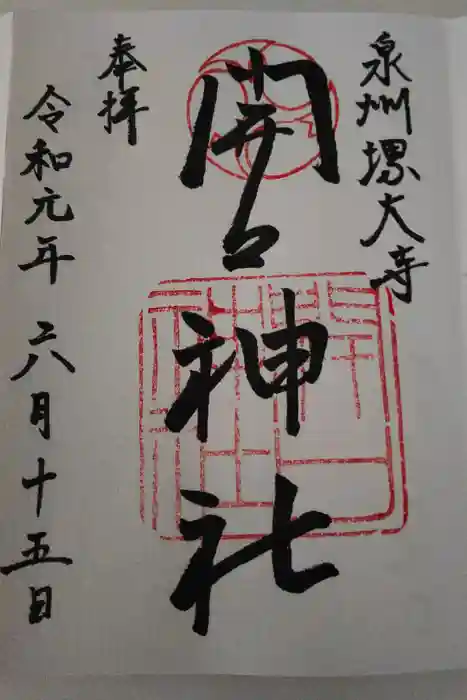 泉州堺大寺
開口神社
奉拝
令和元年 六月十五日